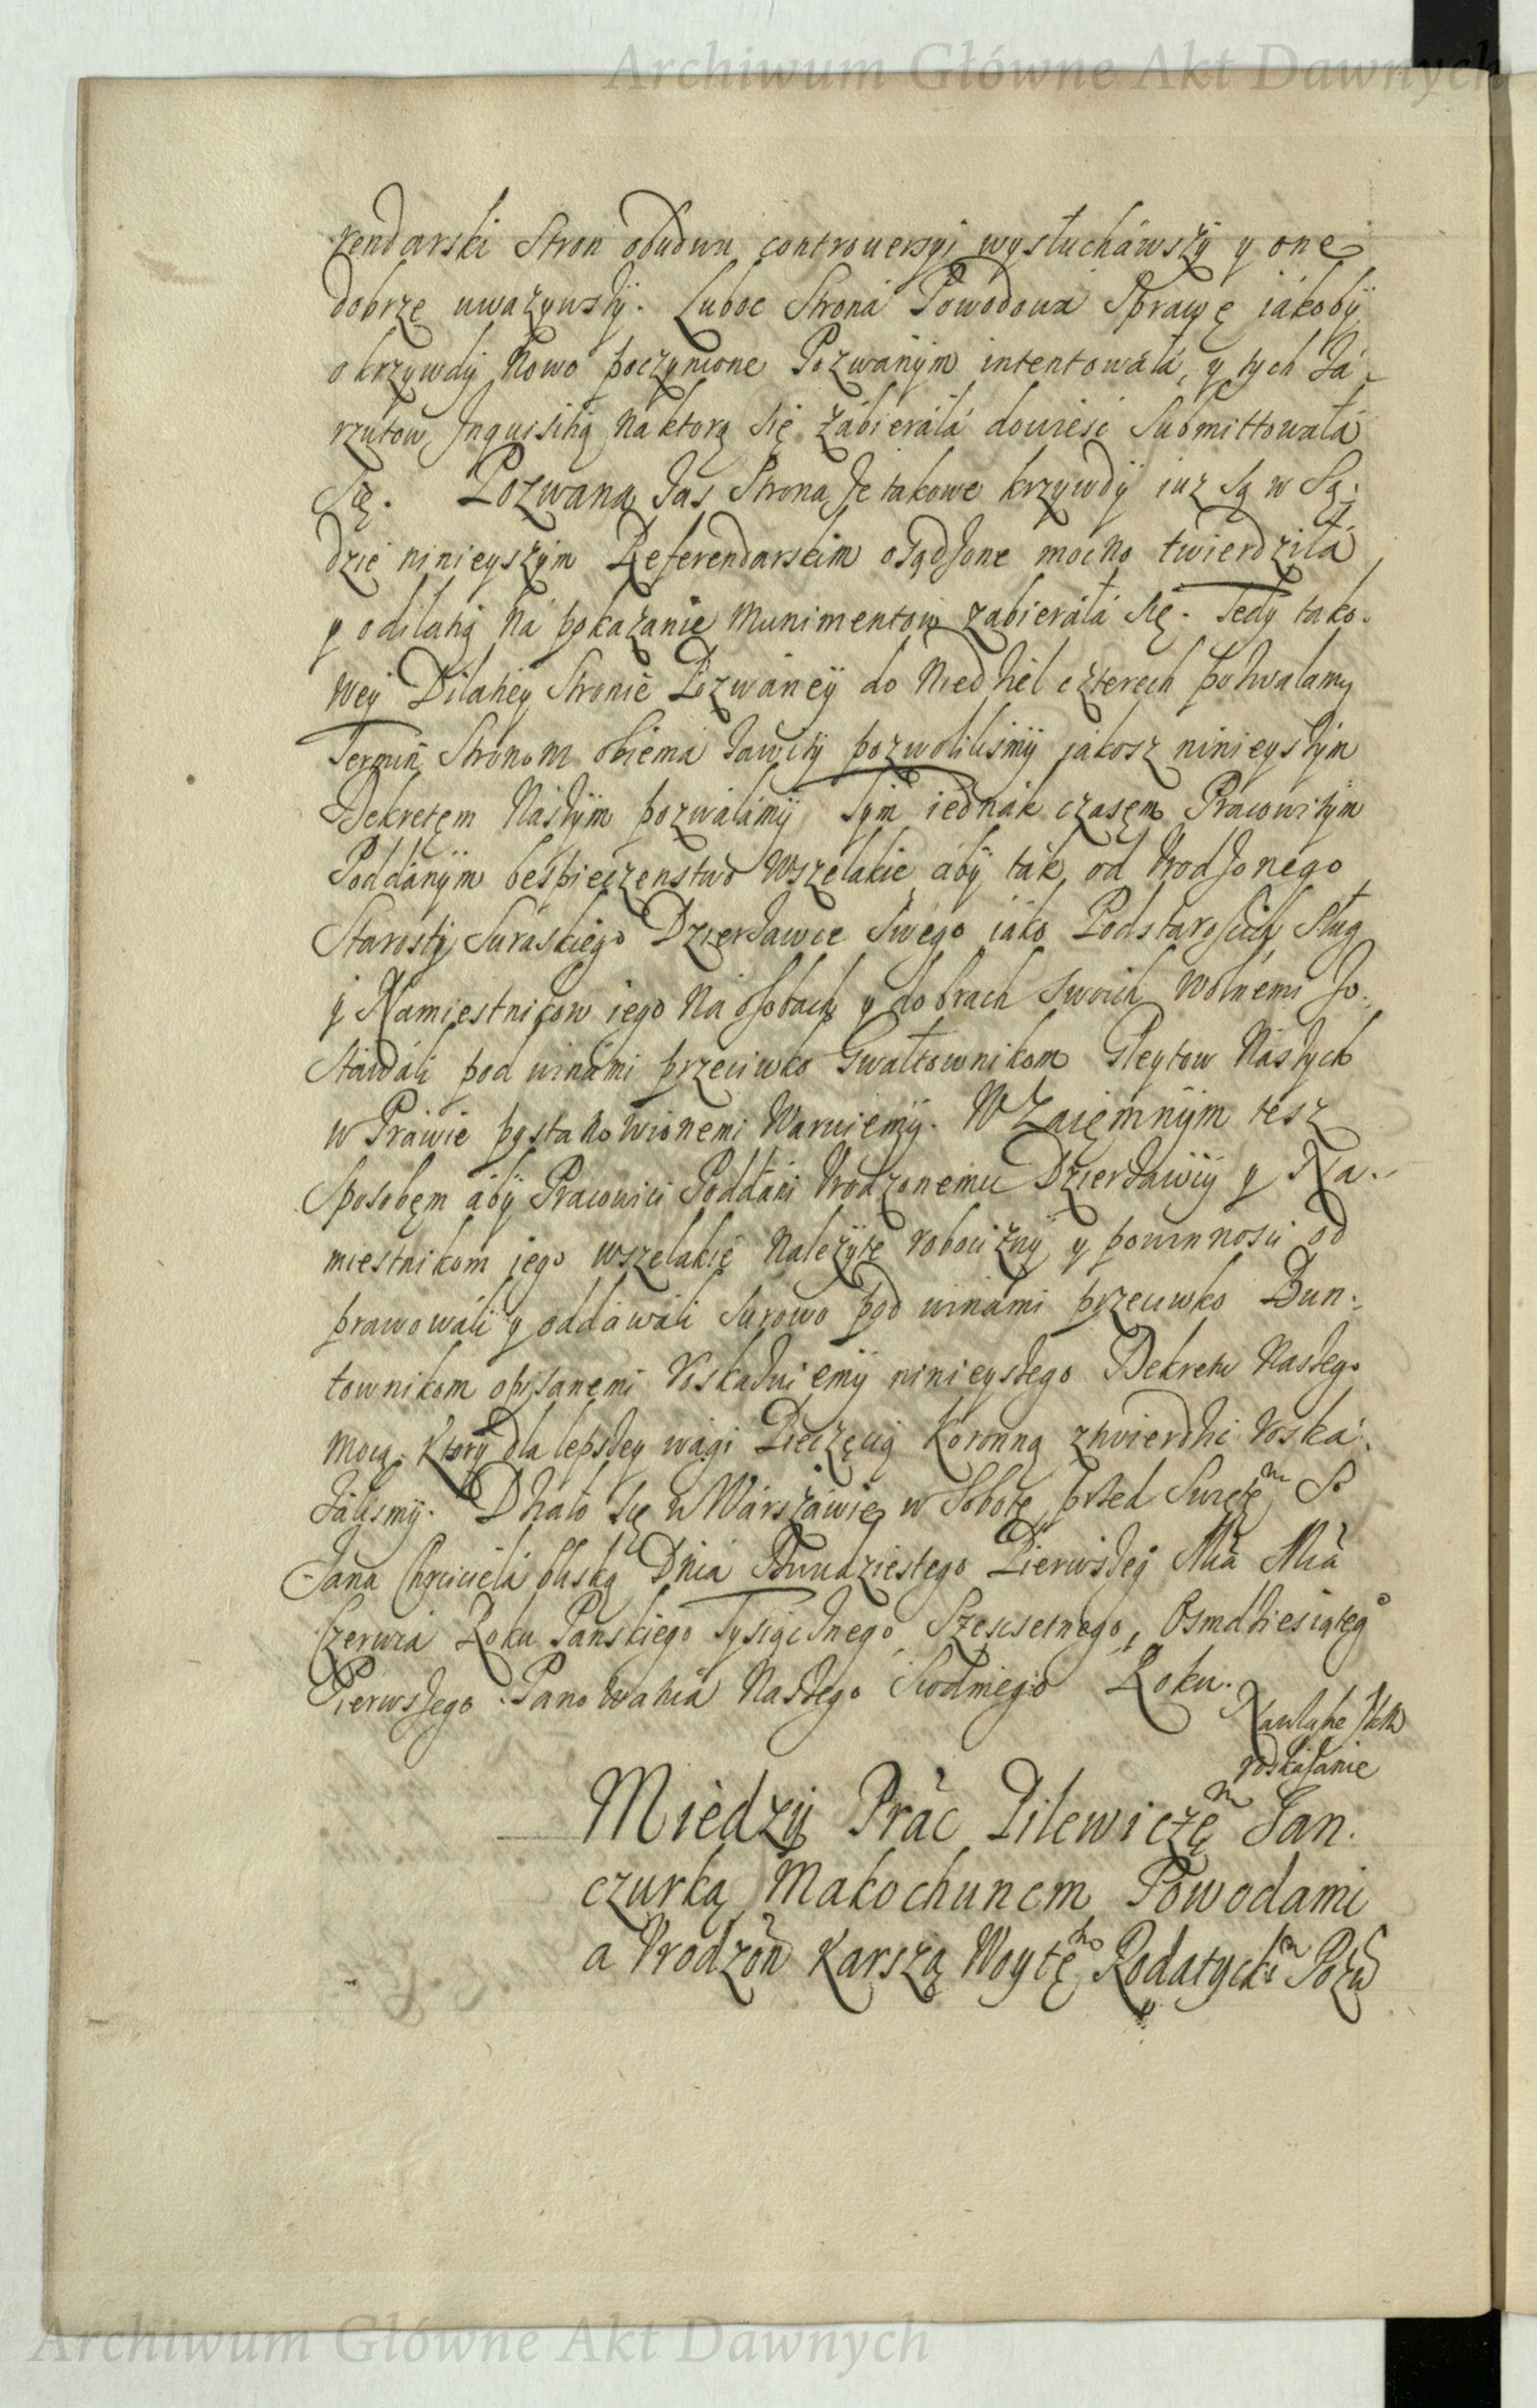 Archiwum Główne Akt Dawnych
rendarski Stron obudwu controuersyi wysłucháwszy y one
dobrze uwazywszy. Luboc Stroná Powodowa Sprawę iákoby
o krzywdy Nowo poczynione Pozwanym intentowáłá, y tych Zá-
rzutow Inquisitią na ktorą się zábieráłá dowiesć Submittowáłá
Się. Pozwana zas Strona ze takowe krzywdy iuz są w Są:
dzie ninieyszym Referendarskim osądzone mocno twierdziłá
y odilatią ná pokazanie Munimentow zabieráłá się. Tedy tako-
wey Dilatiey Stronie Pozwáney do Niedziel czterech pozwalamy
Termin Stronom obiema zawity pozwolilismy jakosz ninieyszym
Dekretem Naszym pozwálámy tym iednák czasem Pracowitym
Poddánym bespieczenstwo Wszelakie áby ták od Urodzonego
Starosty Suraskiego Dzierzawce Swego iáko Podstarościch Sług
y Namiestnikow iego Ná osobach y dobrach Swoich Wolnemi Zo-
stawáli pod winámi przeciwko Gwałtownikom Gleytow Nászych
w Práwie postanowionemi Waruiemy. W Zaiemnym tesz
Sposobem áby Pracowici Poddáni Urodzonemu Dzierzawcy y Na-
miestnikom iego Wszelakie Nalezyte roboćizny y powinnosci od
prawowáli y oddáwáli Surowo pod winámi przeciwko Bun-
townikom opisanemi Roskazuiemy ninieyszego Dekretu Naszego
mocą. Ktory dla lepszey wagi Pieczęcią Koronną ztwierdzić roská-
zálismy. Działo się w Wárszáwie w Sobotę przed Swięte͠m S.
Jana Chrzciciela bliską Dnia Dwudziestego Pierwszeg Mca Mca
Czerwca Roku Pańskiego Tysiącznego Szescsetnego, Osmdziesiąteg°
Pierwszego Panowania Naszego Siodmego Roku.
Na własne JKM
roskazanie
Miedzy Prac Pilewicze͠m Jan-
czurką Makochunem Powodami
a Urodzon Karszą Woyte͠m Rodatyckim Pozw
Archiwum Główne Akt Dawnych